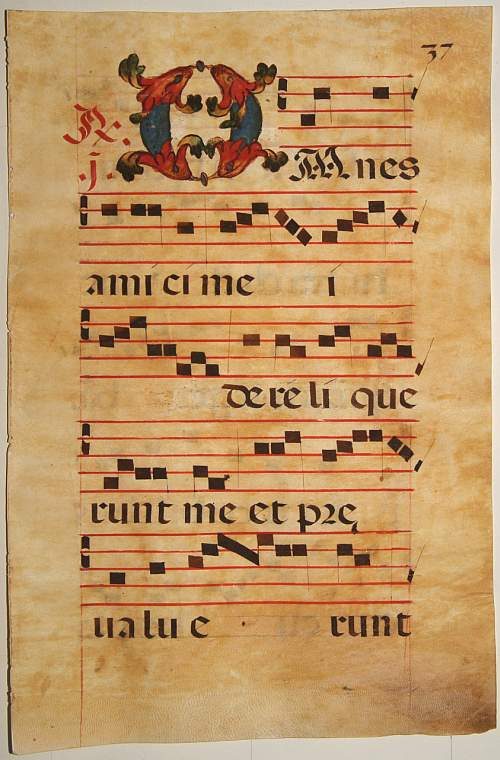 37
R. OMnes
j.
amici me i
dereli que
runt me et pre
ualue runt